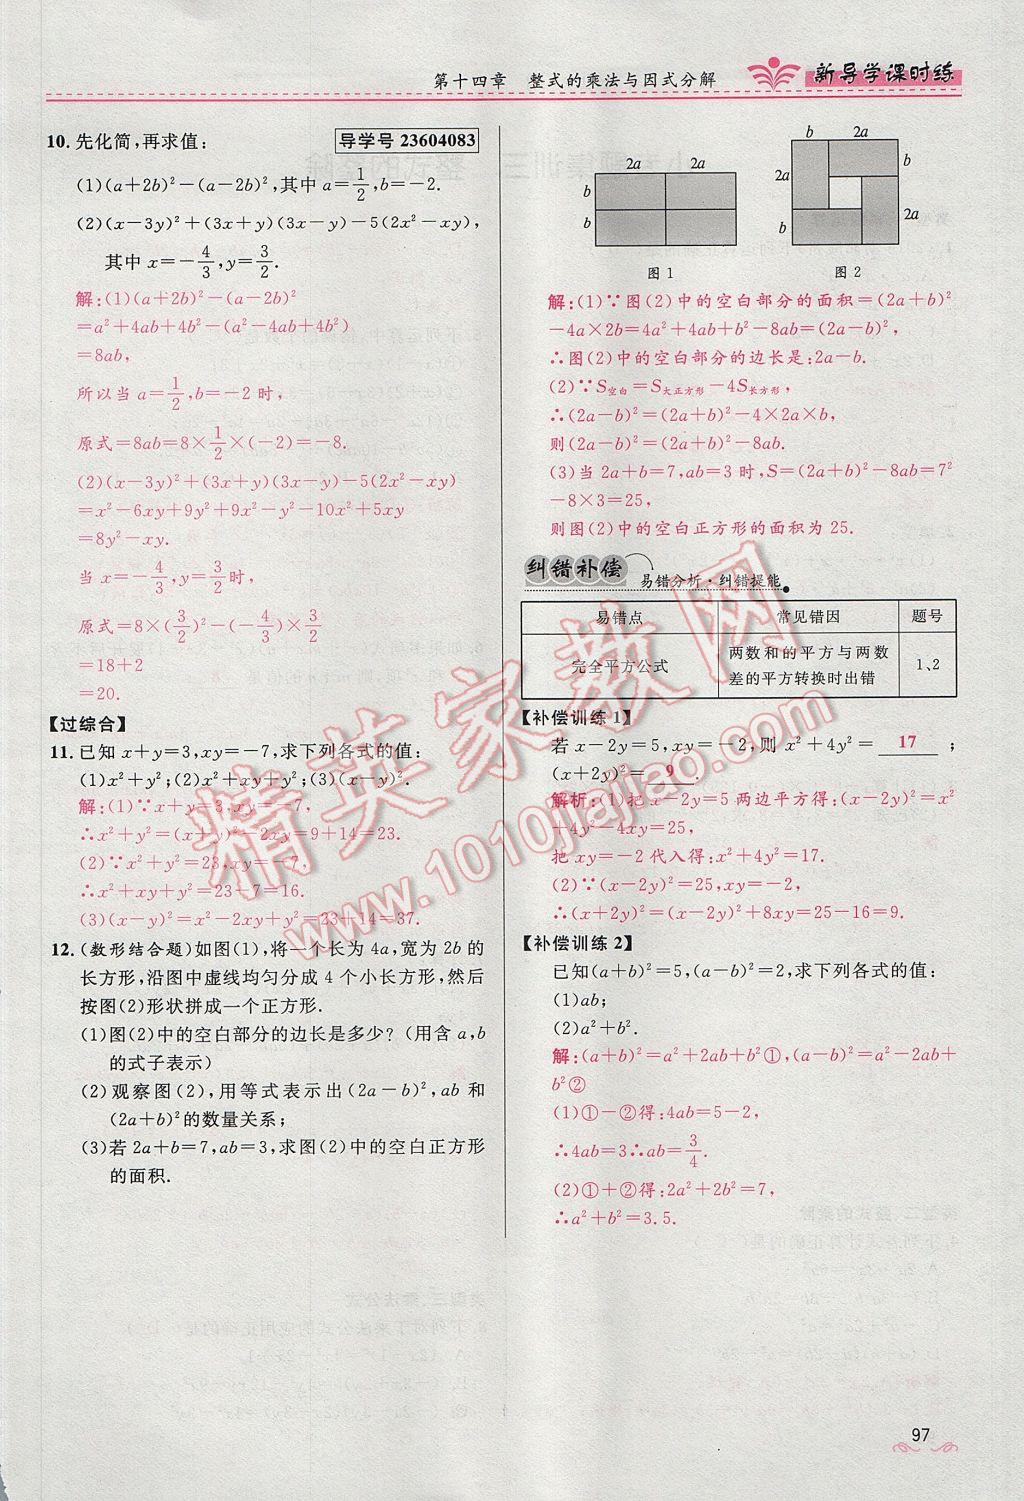 第十四章 整式的乘法与因式分解
新导学课时练
10. 先化简,再求值: 导学号 23604083
(1)(a+2b)²-(a-2b)²,其中 a=1/2,b=-2.
(2)(x-3y)²+(3x+y)(3x-y)-5(2x²-xy),
其中 x=-4/3,y=3/2.
解:(1)(a+2b)²-(a-2b)²
=a²+4ab+4b²-(a²-4ab+4b²)
=8ab,
所以当 a=1/2,b=-2 时,
原式=8ab=8×1/2×(-2)=-8.
(2)(x-3y)²+(3x+y)(3x-y)-5(2x²-xy)
=x²-6xy+9y²+9x²-y²-10x²+5xy
=8y²-xy.
当 x=-4/3,y=3/2时,
原式=8×(3/2)²-(-4/3)×3/2
=18+2
=20.
【过综合】
11. 已知 x+y=3,xy=-7,求下列各式的值:
(1)x²+y²;(2)x²+xy+y²;(3)(x-y)².
解:(1)∵x+y=3,xy=-7,
∴x²+y²=(x+y)²-2xy=9+14=23.
(2)∵x²+y²=23,xy=-7,
∴x²+xy+y²=23-7=16.
(3)(x-y)²=x²-2xy+y²=23+14=37.
12. (数形结合题)如图(1),将一个长为 4a,宽为 2b 的
长方形,沿图中虚线均匀分成 4 个小长方形,然后
按图(2)形状拼成一个正方形.
(1)图(2)中的空白部分的边长是多少?(用含 a,b
的式子表示)
(2)观察图(2),用等式表示出(2a-b)²,ab 和
(2a+b)²的数量关系;
(3)若 2a+b=7,ab=3,求图(2)中的空白正方形
的面积.
2a 2a
b
b
图 1
b 2a
2a b
b 2a
图 2
解:(1)∵图(2)中的空白部分的面积=(2a+b)²
-4a×2b=4a²+4ab+b²-8ab=(2a-b)²,
∴图(2)中的空白部分的边长是:2a-b.
(2)∵S空白=S大正方形-4S长方形,
∴(2a-b)²=(2a+b)²-4×2a×b,
则(2a-b)²=(2a+b)²-8ab.
(3)当 2a+b=7,ab=3 时,S=(2a+b)²-8ab=7²
-8×3=25,
则图(2)中的空白正方形的面积为 25.
纠错补偿 易错分析·纠错提能
易错点 常见错因 题号
完全平方公式 两数和的平方与两数差的平方转换时出错 1、2
【补偿训练 1】
若 x-2y=5,xy=-2,则 x²+4y²= 17 ;
(x+2y)²= 9 .
解析:(1)把 x-2y=5 两边平方得:(x-2y)²=x²
+4y²-4xy=25,
把 xy=-2 代入得:x²+4y²=17.
(2)∵(x-2y)²=25,xy=-2,
∴(x+2y)²=(x-2y)²+8xy=25-16=9.
【补偿训练 2】
已知(a+b)²=5,(a-b)²=2,求下列各式的值:
(1)ab;
(2)a²+b².
解:(a+b)²=a²+2ab+b²①,(a-b)²=a²-2ab+
b²②
(1)①-②得:4ab=5-2,
∴4ab=3∴ab=3/4.
(2)①+②得:2a²+2b²=7,
∴a²+b²=3.5.
精英家教网
www.1010jiajiao.com
97